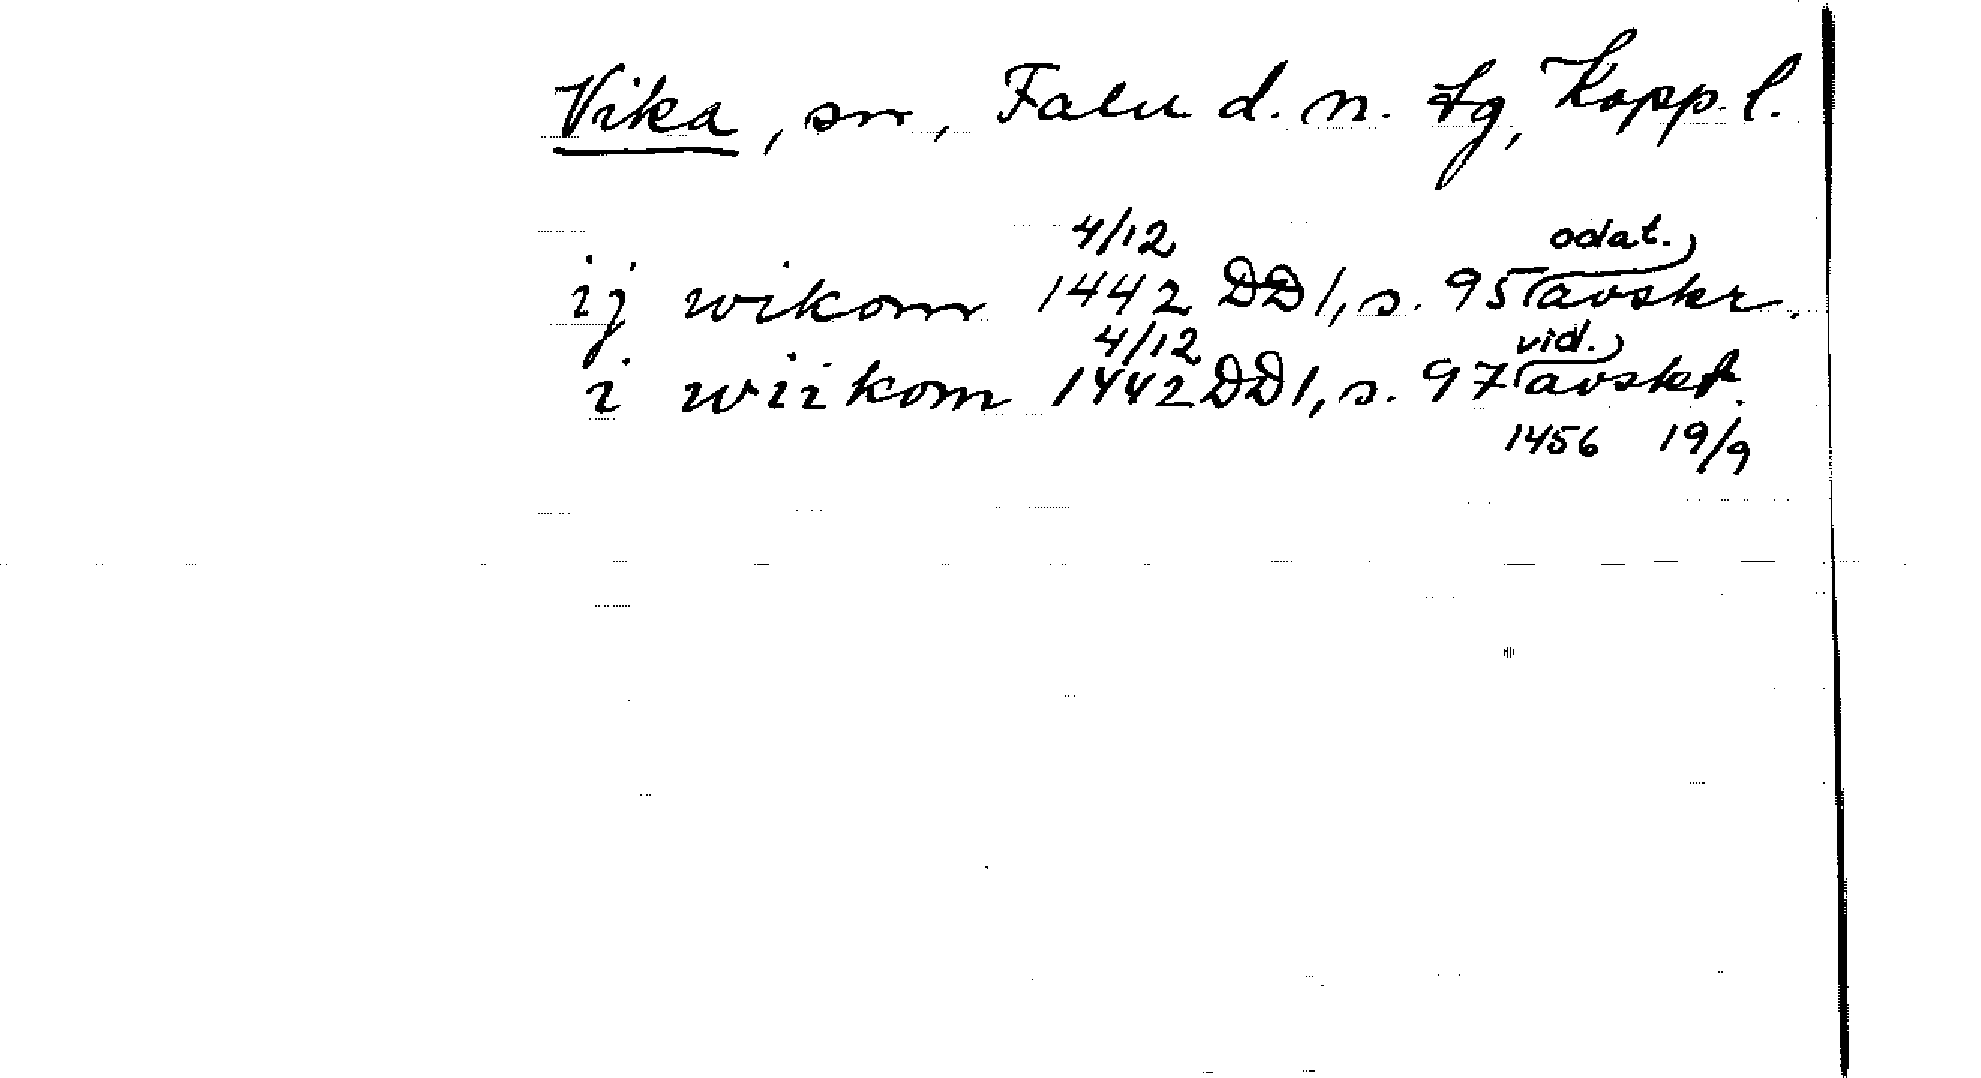 Vika, sn, Falu d. n. tg, Kopp. l.
ij wikom 4/12 1442 DD 1, s. 95 odat. avskr.
i wiikom 4/12 1442 DD 1, s. 97 vid. avskr.
1456 19/9